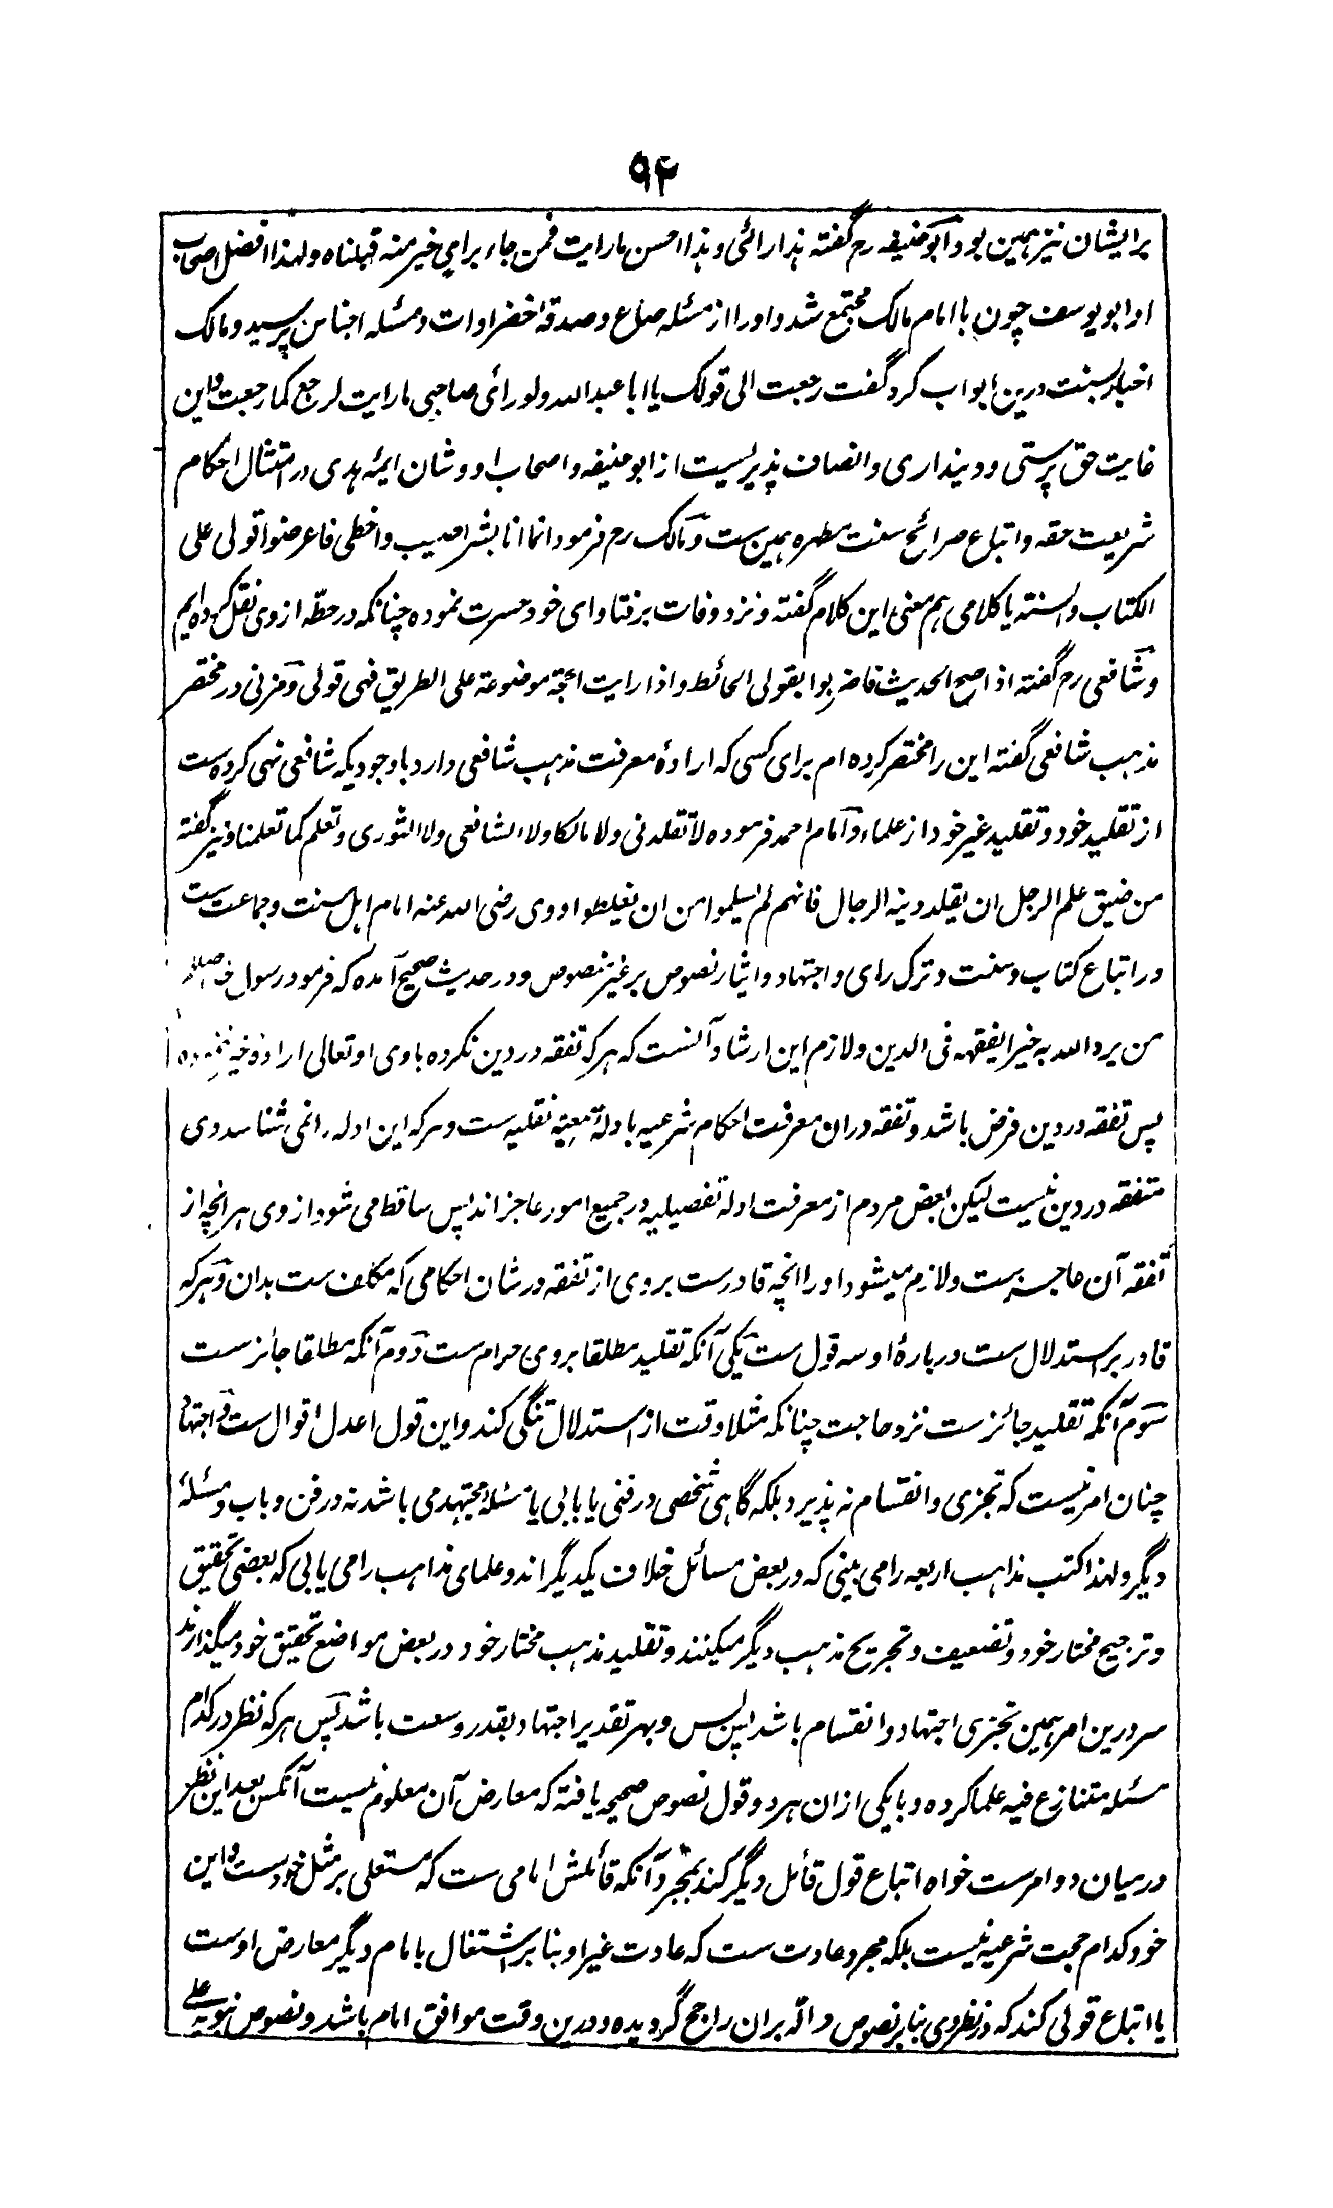 ۹۴
برایشان نیز همین بود و ابوحنیفه رح گفته هذا رائی و هذا احسن ما رایت فمن جاء برای خیر منه قبلناه و لهذا افضل اصحاب
او ابو یوسف چون با امام مالک مجتمع شد و او را از مسئله صاع و صدقه اخضراوات و مسئله اجناس پرسید و مالک
اخبار بسنت درین ابواب کرد گفت رجعت الی قولک یا ابا عبد الله و لو رائ صاحبی ما رایت لرجع کما رجعت و این
غایت حق پرستی و دینداری و انصاف پذیریست از ابو حنیفه و اصحاب او و شان ایمۀ هدی در امتثال احکام
شریعت حقه و اتباع صرائح سنت مطهره همین ست و مالک رح فرمود انما انا بشر اصیب و اخطی فاعرضوا قولی علی
الکتاب و السنة یا کلامی هم معنی این کلام گفته و نزد وفات بر فتاوای خود حسرت نموده چنانکه در حطه از وی نقل کرده ایم
و شافعی رح گفته اذا صح الحدیث فاضربوا بقولی الحائط و اذا رایت الحجة موضوعة علی الطریق فهی قولی و مزنی در مختصر
مذهب شافعی گفته این را مختصر کرده ام برای کسی که ارادۀ معرفت مذهب شافعی دارد باوجودیکه شافعی نهی کرده ست
از تقلید خود و تقلید غیر خود از علماء و امام احمد فرموده لا تقلدنی و لا مالکا و لا الشافعی و لا الثوری و تعلم کما تعلمنا و نیز گفته
من ضیق علم الرجل ان یقلد دینه الرجال فانهم لم یسلموا من ان یغلطوا و وی رضی الله عنه امام اهل سنت و جماعت ست
در اتباع کتاب و سنت و ترک رای و اجتهاد و ایثار نصوص بر غیر منصوص و در حدیث صحیح آمده که فرمود رسول خدا صللم
من یرد الله به خیرا یفقهه فی الدین و لازم این ارشاد آنست که هر که تفقه در دین نکرده با وی او تعالی ارادۀ خیر ننموده
پس تفقه در دین فرض باشد و تفقه در ان معرفت احکام شرعیه بادلۀ سمعیۀ نقلیه ست و هر که این ادله را نمی شناسد وی
متفقه در دین نیست لیکن بعض مردم از معرفت ادلۀ تفصیلیه در جمیع امور عاجز اند پس ساقط می شود از وی هر انچه از
تفقه آن عاجز ست و لازم میشود او را انچه قادر ست بر وی از تفقه در شان احکامی که مکلف ست بدان و هر که
قادر بر استدلال ست در بارۀ او سه قول ست یکی آنکه تقلید مطلقا بروی حرام ست دوم آنکه مطلقا جائز ست
سوم آنکه تقلید جائز ست نزد حاجت چنانکه مثلا وقت از استدلال تنگی کند و این قول اعدل اقوال ست و اجتهاد
چنان امر نیست که تجزی و انقسام نه پذیرد بلکه گاهی شخصی در فنی یا بابی یا مسئلۀ مجتهد می باشد نه در فن و باب و مسئلۀ
دیگر و لهذا کتب مذاهب اربعه را می بینی که در بعض مسائل خلاف یکدیگر اند و علمای مذاهب را می یابی که بعضی تحقیق
و ترجیح مختار خود و تضعیف و تجریح مذهب دیگر میکنند و تقلید مذهب مختار خود در بعض مواضع تحقیق خود میگذارند
سر درین امر همین تجزی اجتهاد و انقسام باشد لیس و بهر تقدیر اجتهاد بقدر وسعت باشد پس هر که نظر در کدام
مسئله متنازع فیه علما کرده و با یکی از ان هر دو قول نصوص صحیحه یافته که معارض آن معلوم نیست آنکس بعد این نظر
درمیان دو امر ست خواه اتباع قول قائل دیگر کند بمجرد آنکه قائلش امامی ست که مستعلی بر مثل خود ست و این
خود کدام حجت شرعیه نیست بلکه مجرد عادت ست که عادت غیر او بنا بر اشتغال بامام دیگر معارض اوست
یا اتباع قولی کند که در نظر وی بنابر نصوص واله بران راجح گردیده و درین وقت موافق امام باشد و نصوص نبویه علی